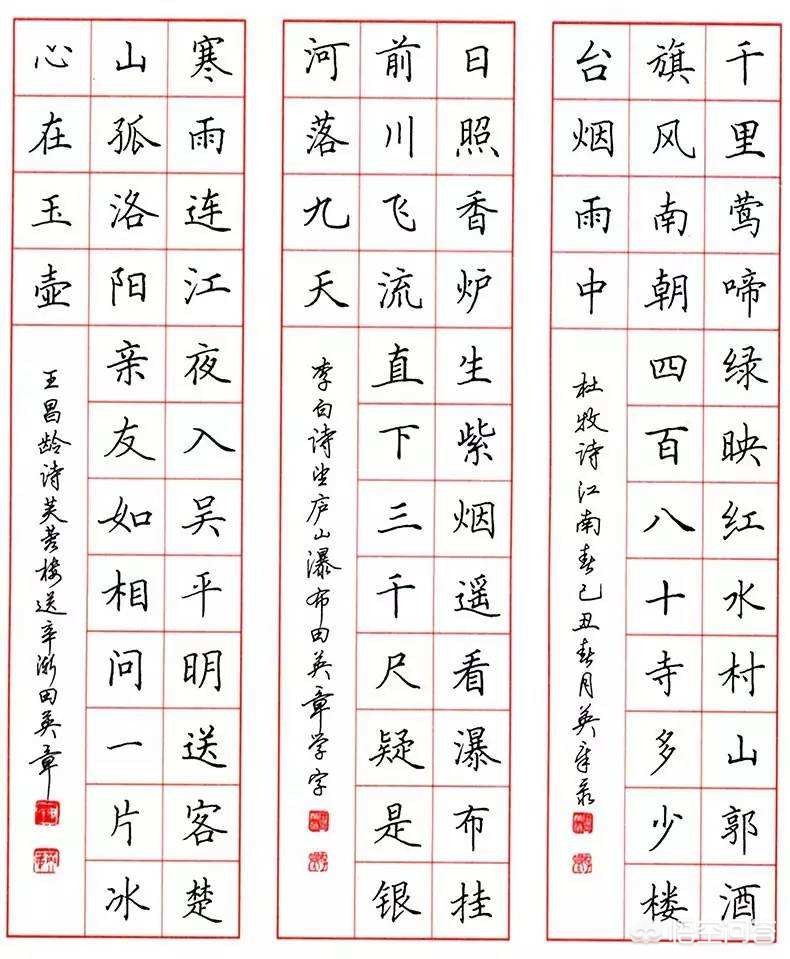 千里莺啼绿映红水村山郭酒
旗风南朝四百八十寺多少楼
台烟雨中
杜牧诗江南春己丑春月英章录
日照香炉生紫烟遥看瀑布挂
前川飞流直下三千尺疑是银
河落九天
李白诗望庐山瀑布田英章学字
寒雨连江夜入吴平明送客楚
山孤洛阳亲友如相问一片冰
心在玉壶
王昌龄诗芙蓉楼送辛渐田英章
悟空问答